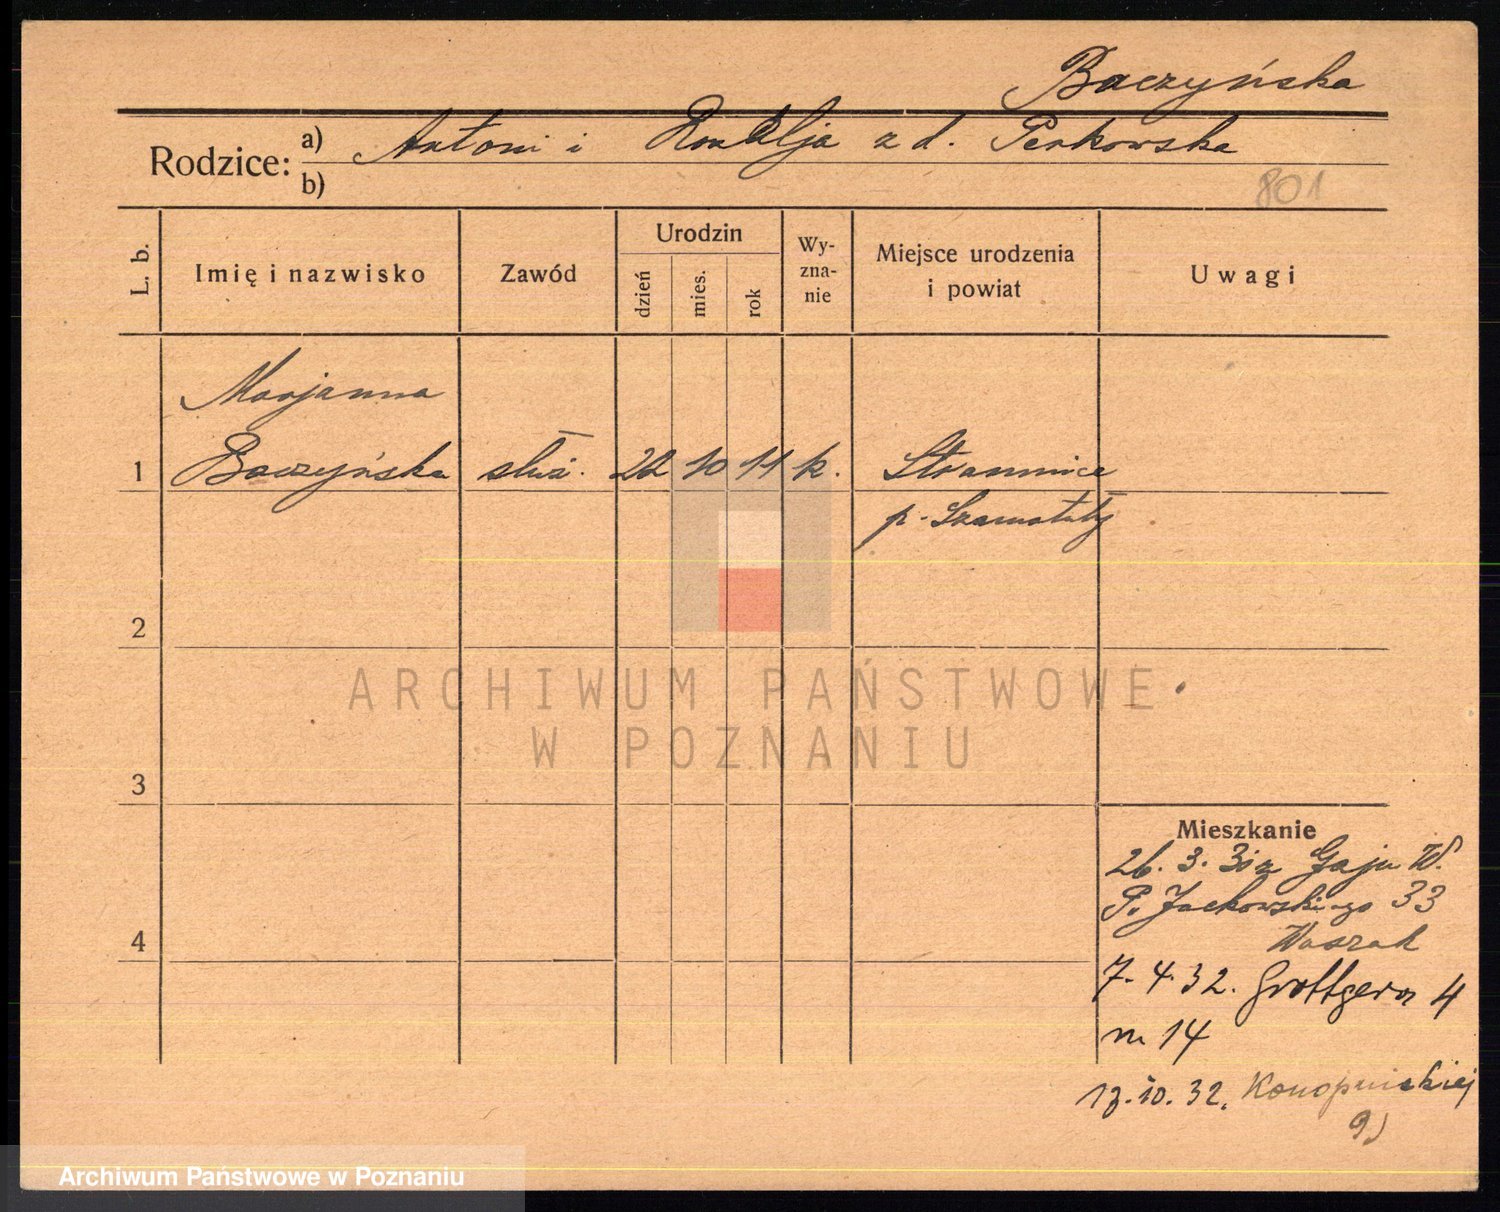 Baczyńska
Rodzice: a) Antoni i Rozalja z d. Perkowska
b)
801
L. b.
Imię i nazwisko
Zawód
Urodzin
dzień
mies.
rok
Wy-
zna-
nie
Miejsce urodzenia
i powiat
Uwagi
Marjanna
1 Baczyńska służ. 22 10 11 k.
p. Szamotuły
2
3
4
ARCHIWUM PAŃSTWOWE
W POZNANIU
Mieszkanie
26. 3. 31 z Gaju W.
P. Jackowski-ego 33
Waszak
7. 4. 32. Grottgera 4
m 14
13. 10. 32. Konopnickiej
9)
Archiwum Państwowe w Poznaniu